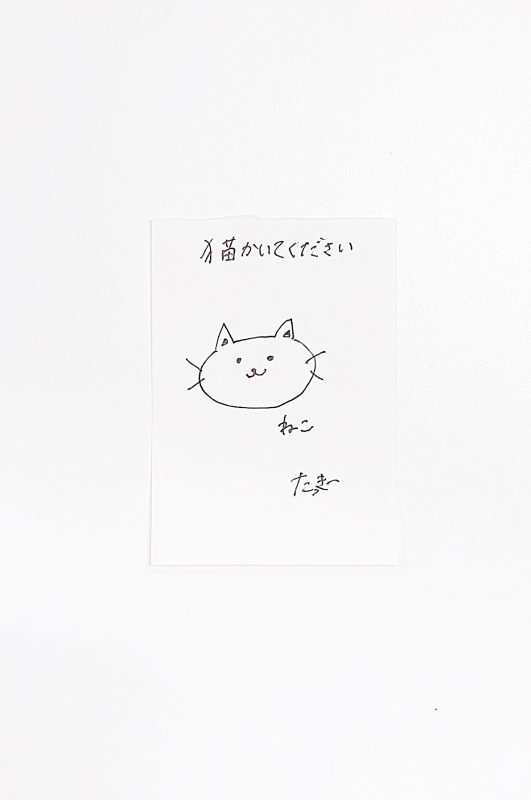 猫かいてください
ねこ
たっきー